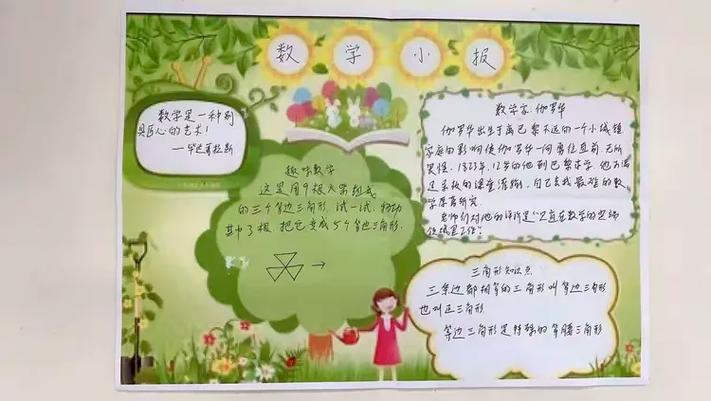 数学小报
数学是一种别
具匠心的艺术!
数学家:伽罗华
伽罗华出生于离巴黎不远的一个小城镇
家庭的影响使伽罗华一向勇往直前无所
畏惧. 1823年, 12岁的他到巴黎求学 他不满
足呆板的课堂灌输, 自己去找最难的数
学原著研究.
老师们对他的评价是"只宜在数学的尖端
领域里工作".
趣味数学
这是用9根火柴组成
的三个等边三角形. 试一试. 移动
其中3根. 把它变成5个等边三角形.
三角形知识点
三条边都相等的三角形叫等边三角形
也叫正三角形
等边三角形是特殊的等腰三角形